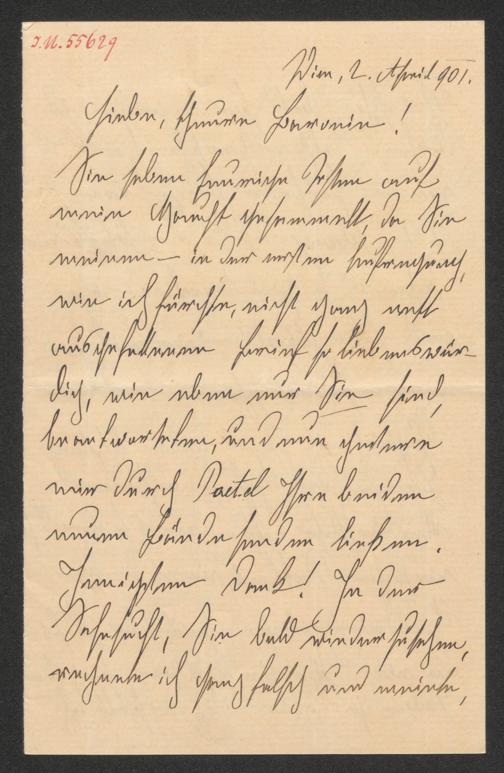 I.N. 55629
Wien, 2. April 901.
Liebe, theure Baronin!
Sie haben feurige Kohlen auf
mein Haupt gesammelt, da Sie
meinen – in der ersten Aufregung,
wie ich fürchte, nicht ganz nett
ausgefallenen Brief so liebenswür-
dig, wie eben nur Sie sind,
beantworteten, und nun gestern
mir durch Paetel Ihre beiden
neuen Bände senden ließen.
Innigsten Dank! In der
Sehnsucht, Sie bald wiederzusehen,
rechnete ich ganz falsch und meinte,